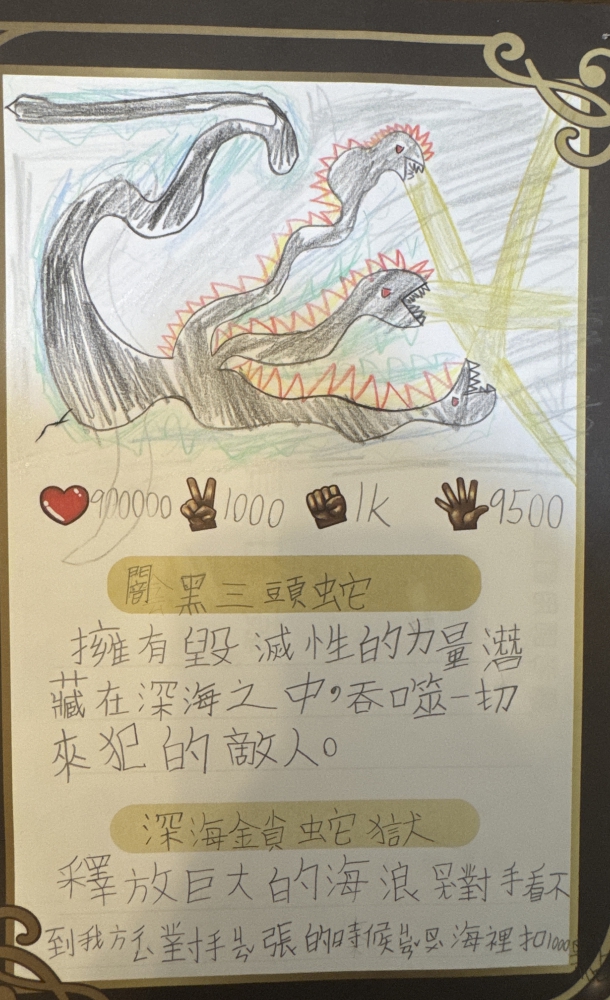 900000 1000 1k 9500
闇黑三頭蛇
擁有毀滅性的力量潛
藏在深海之中,吞噬一切
來犯的敵人。
深海鎖蛇獄
釋放巨大的海浪 對手看不
到我方 對手 張的時候 海裡扣1000